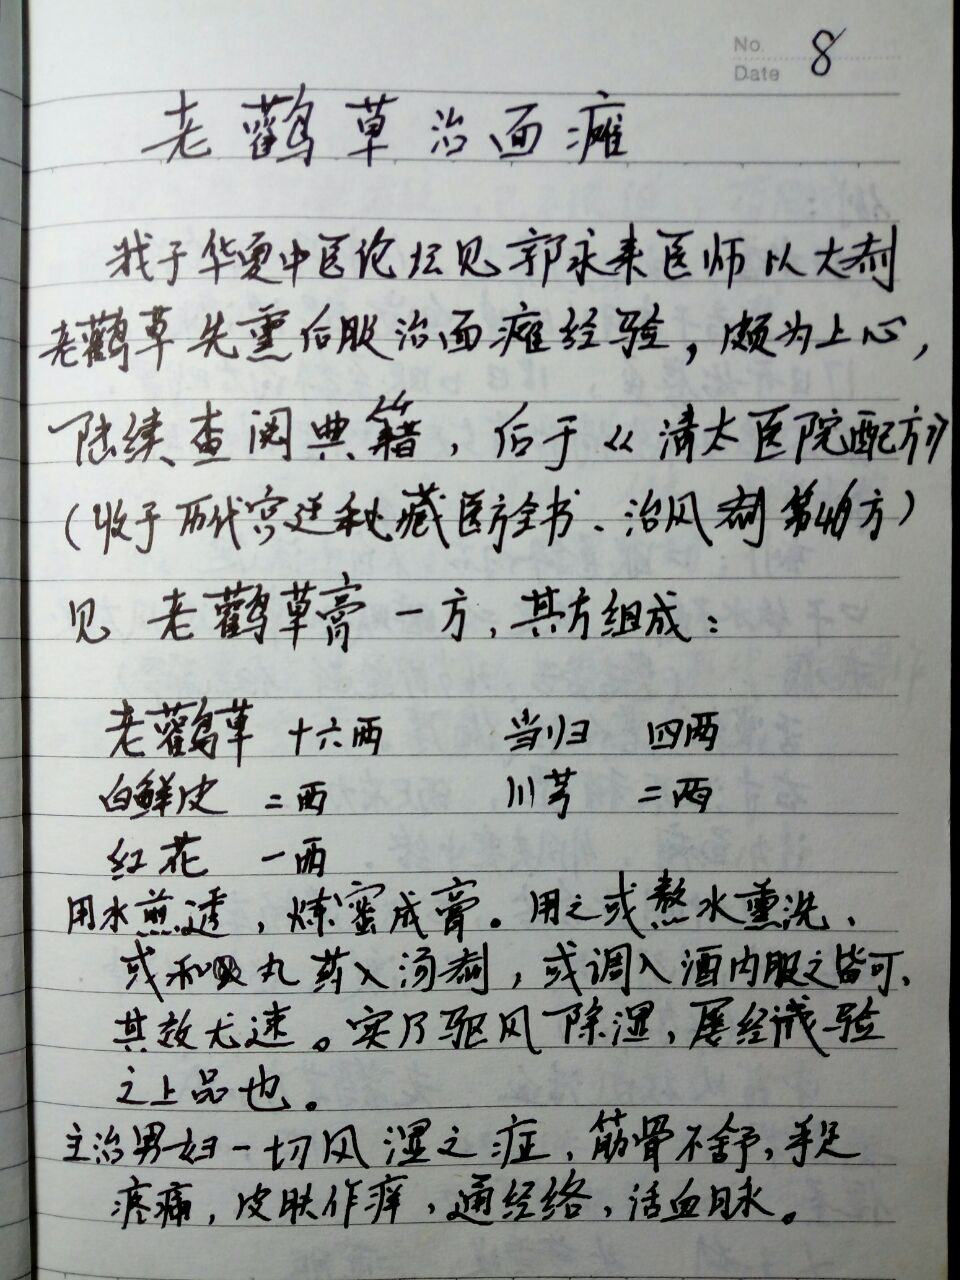 No. 8
Date
老鹳草治面瘫
我于华夏中医论坛见郭永来医师以大剂
老鹳草先熏后服治面瘫经验，颇为上心，
陆续查阅典籍，后于《清太医院配方》
（收于历代宫廷秘藏医方全书、治风剂第46方）
见 老鹳草膏一方，其方组成：
老鹳草 十六两 当归 四两
白鲜皮 二两 川芎 二两
红花 一两
用水煎透，炼蜜成膏。用之或熬水熏洗、
或和丸药入汤剂，或调入酒内服之皆可、
其效尤速。实乃驱风除湿，屡经诚验
之上品也。
主治男妇一切风湿之症，筋骨不舒，手足
疼痛，皮肤作痒，通经络，活血脉。